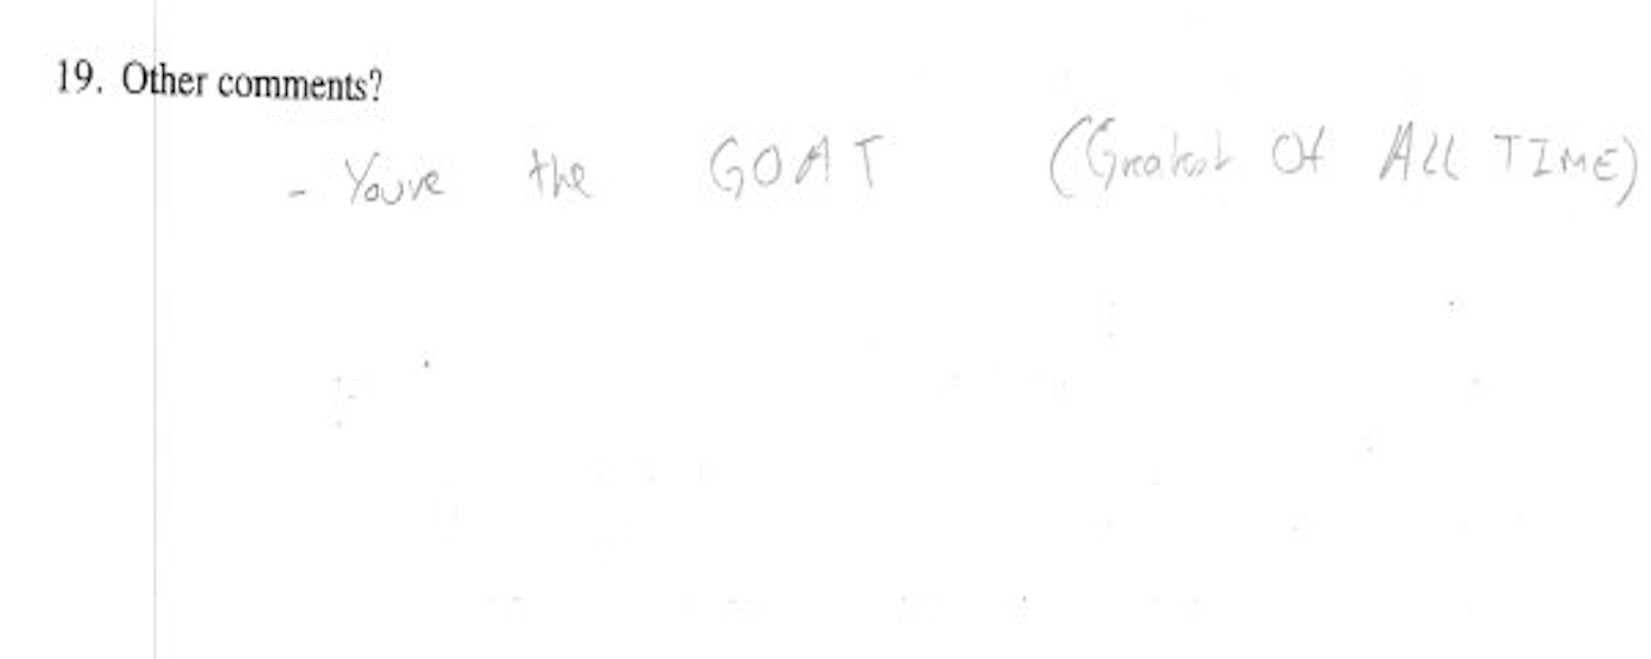 19. Other comments?
- You're the GOAT (Greatest Of ALL TIME)